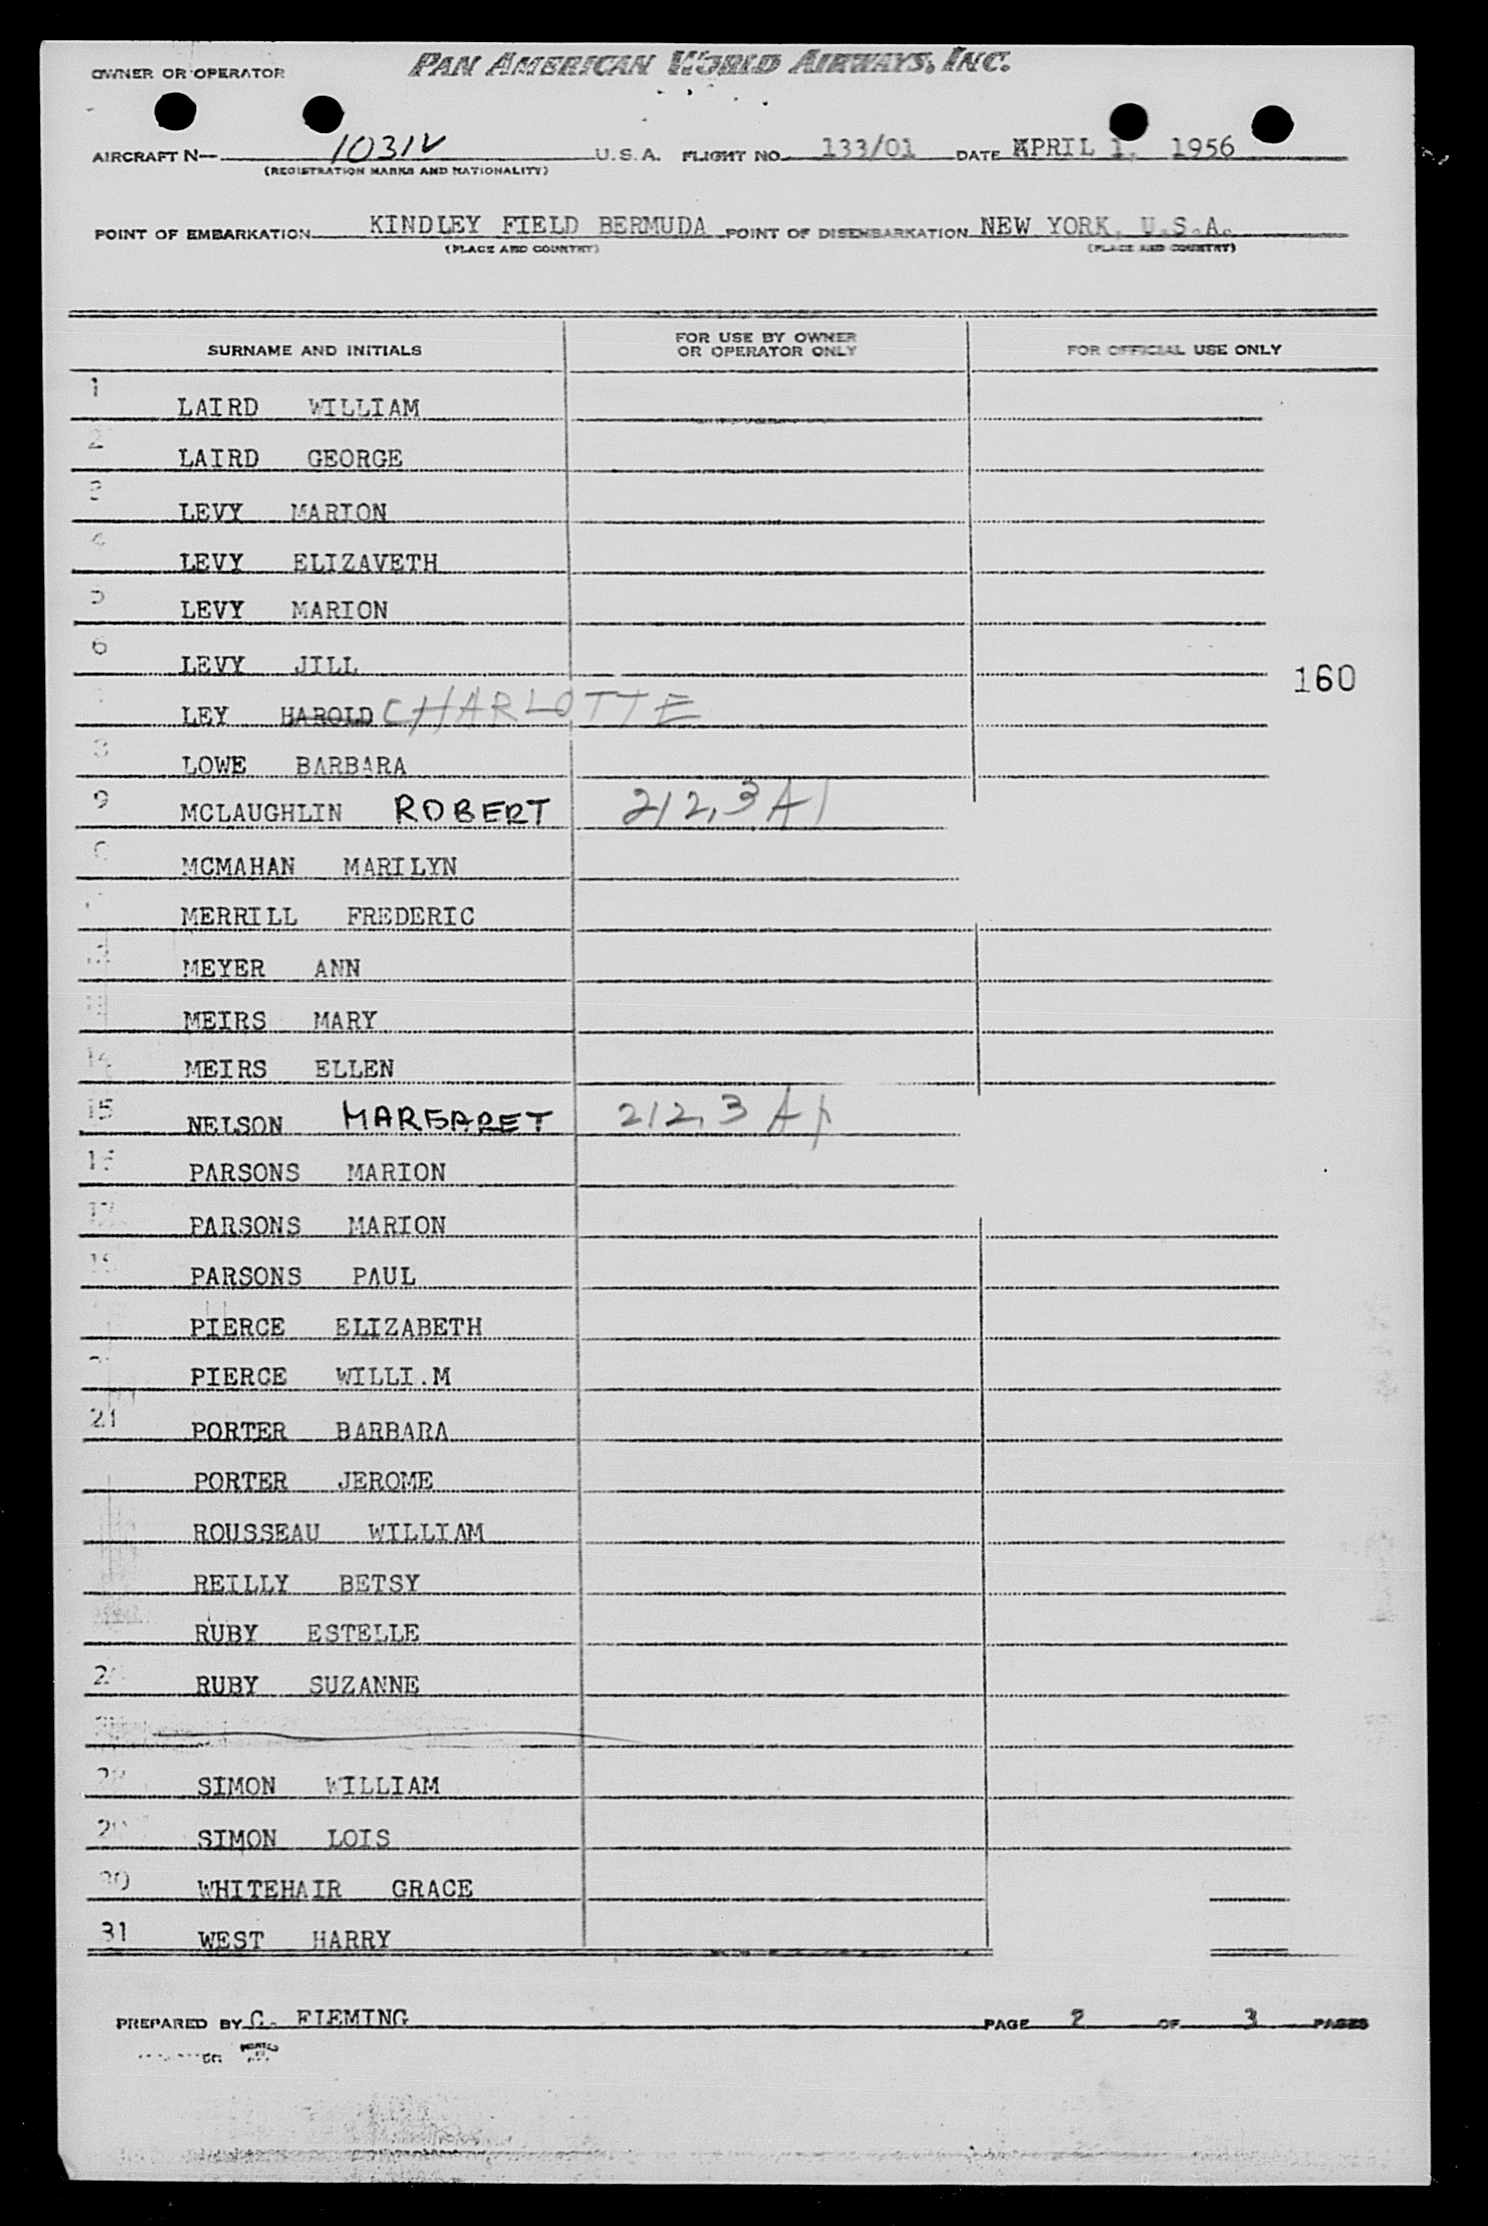 OWNER OR OPERATOR PAN AMERICAN WORLD AIRWAYS, INC.
AIRCRAFT N— 1031V U.S.A. FLIGHT NO. 133/01 DATE APRIL 1, 1956
(REGISTRATION MARKS AND NATIONALITY)
POINT OF EMBARKATION KINDLEY FIELD BERMUDA POINT OF DISEMBARKATION NEW YORK, U.S.A.
(PLACE AND COUNTRY) (PLACE AND COUNTRY)
SURNAME AND INITIALS FOR USE BY OWNER OR OPERATOR ONLY FOR OFFICIAL USE ONLY
1 LAIRD WILLIAM
2 LAIRD GEORGE
3 LEVY MARION
4 LEVY ELIZAVETH
5 LEVY MARION
6 LEVY JILL
160
LEY HAROLD CHARLOTTE
8 LOWE BARBARA
9 MCLAUGHLIN ROBERT 212,3 A1
MCMAHAN MARILYN
MERRILL FREDERIC
MEYER ANN
MEIRS MARY
14 MEIRS ELLEN
15 NELSON MARGARET 212,3 A1
16 PARSONS MARION
17 PARSONS MARION
PARSONS PAUL
PIERCE ELIZABETH
PIERCE WILLI.M
21 PORTER BARBARA
PORTER JEROME
ROUSSEAU WILLIAM
REILLY BETSY
RUBY ESTELLE
RUBY SUZANNE
28 SIMON WILLIAM
29 SIMON LOIS
30 WHITEHAIR GRACE
31 WEST HARRY
PREPARED BY C. FLEMING PAGE 2 OF 3 PAGES